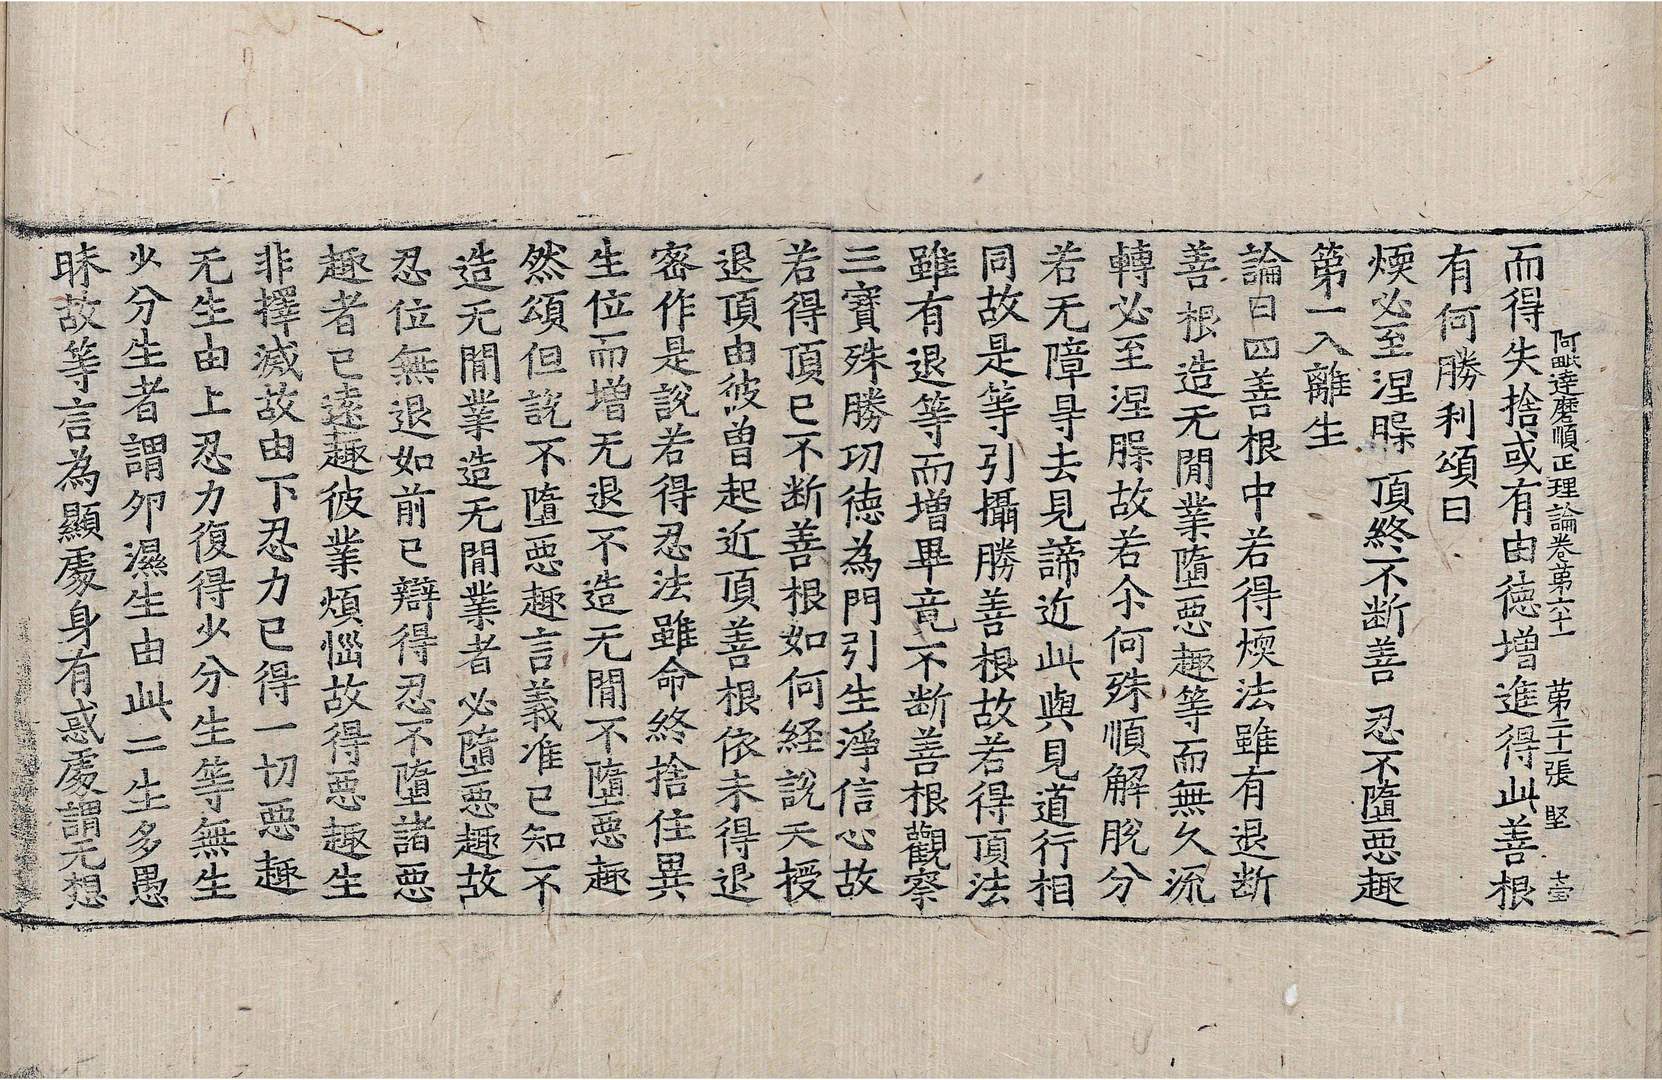 阿毗達磨順正理論卷第六十一 第二十張 堅
而得失捨或有由德增進得此善根
有何勝利頌曰
煗必至涅槃 頂終不断善 忍不墮惡趣
第一入離生
論曰四善根中若得煗法雖有退断
善根造无間業墮惡趣等而無久流
轉必至涅槃故若尒何殊順解脫分
若无障㝵去見諦近此與見道行相
同故是等引攝勝善根故若得頂法
雖有退等而增畢竟不断善根觀察
三寶殊勝功德為門引生淨信心故
若得頂已不断善根如何経說天授
退頂由彼曾起近頂善根依未得退
密作是說若得忍法雖命終捨住異
生位而增无退不造无間不墮惡趣
然頌但說不墮惡趣言義准已知不
造无間業造无間業者必墮惡趣故
忍位無退如前已辯得忍不墮諸惡
趣者已遠趣彼業煩惱故得惡趣生
非擇滅故由下忍力已得一切惡趣
无生由上忍力復得少分生等無生
少分生者謂卵濕生由此二生多愚
昧故等言為顯處身有惑處謂无想